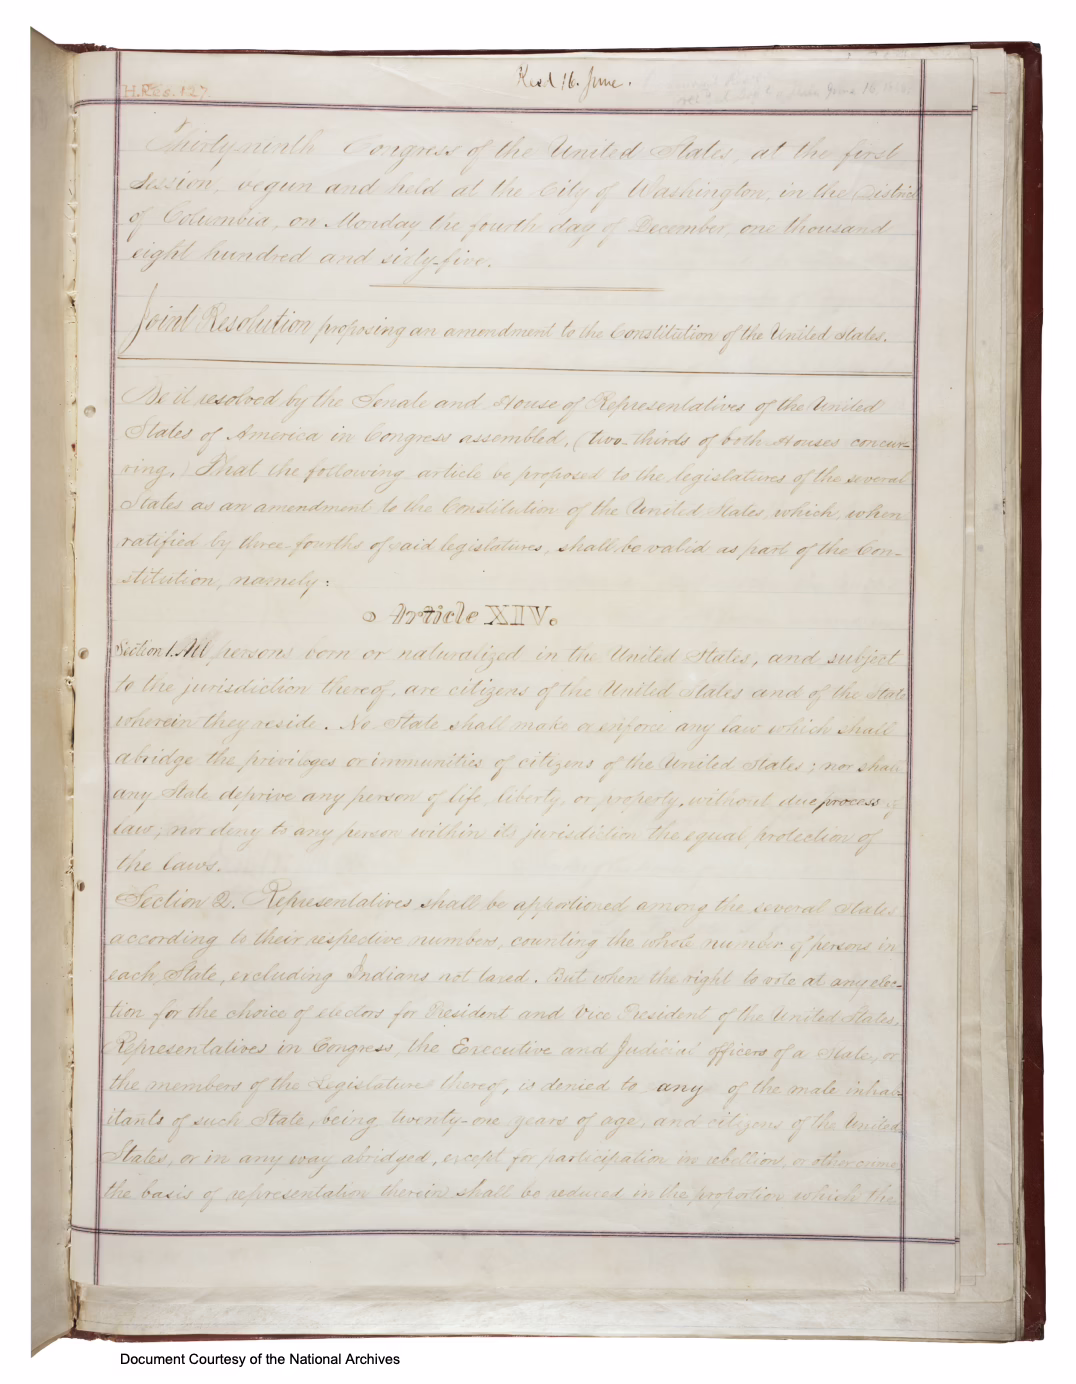 H.Res. 127
Recd 16. June.
Thirty-ninth Congress of the United States, at the first
Session, begun and held at the City of Washington, in the District
of Columbia, on Monday the fourth day of December, one thousand
eight hundred and sixty-five.
Joint Resolution proposing an amendment to the Constitution of the United States.
Be it resolved by the Senate and House of Representatives of the United
States of America in Congress assembled, (two-thirds of both Houses concur-
ring,) That the following article be proposed to the legislatures of the several
States as an amendment to the Constitution of the United States, which, when
ratified by three-fourths of said legislatures, shall be valid as part of the Con-
stitution, namely:
Article XIV.
Section 1. All persons born or naturalized in the United States, and subject
to the jurisdiction thereof, are citizens of the United States and of the State
wherein they reside. No State shall make or enforce any law which shall
abridge the privileges or immunities of citizens of the United States; nor shall
any State deprive any person of life, liberty, or property, without due process of
law; nor deny to any person within its jurisdiction the equal protection of
the laws.
Section 2. Representatives shall be apportioned among the several States
according to their respective numbers, counting the whole number of persons in
each State, excluding Indians not taxed. But when the right to vote at any elec-
tion for the choice of electors for President and Vice President of the United States,
Representatives in Congress, the Executive and Judicial officers of a State, or
the members of the Legislature thereof, is denied to any of the male inhab-
itants of such State, being twenty-one years of age, and citizens of the United
States, or in any way abridged, except for participation in rebellion, or other crime,
the basis of representation therein shall be reduced in the proportion which the
Document Courtesy of the National Archives